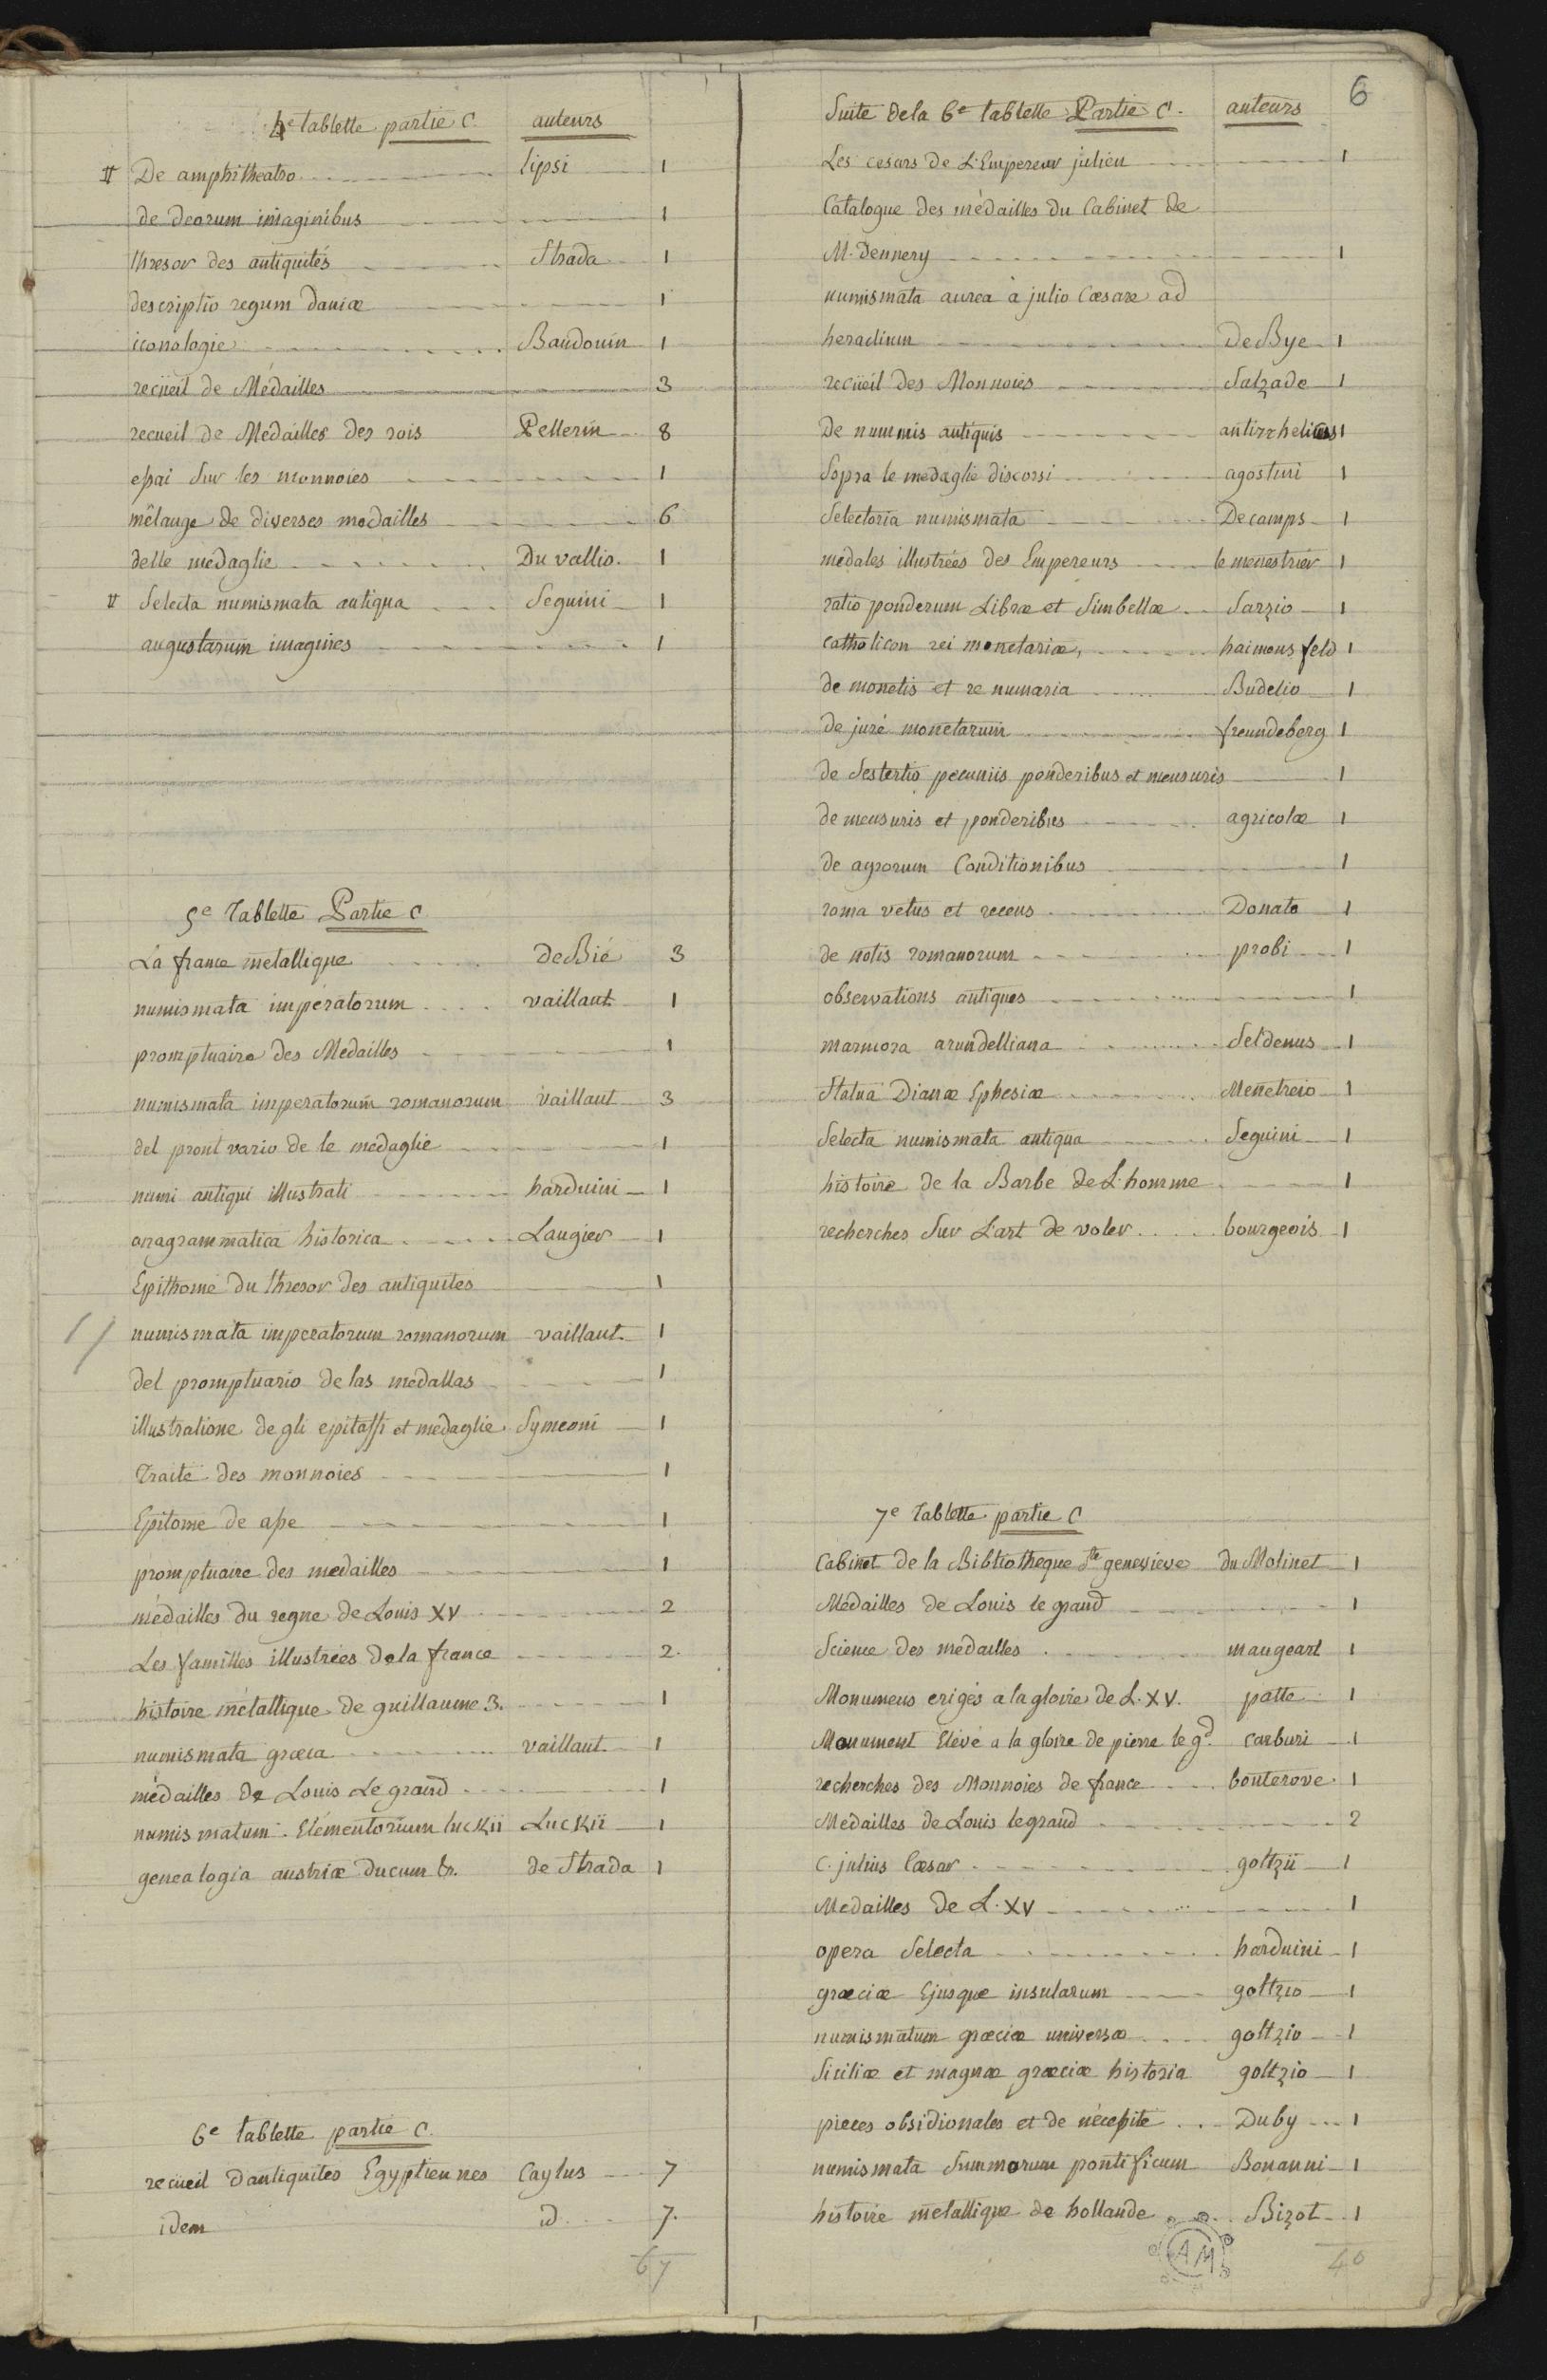 4e tablette partie C. auteurs
De amphitheatro lipsi 1
de deorum imaginibus 1
thresor des antiquités Strada 1
descriptio regum daniæ 1
iconologie Baudouin 1
recüeil de Médailles 3
recueil de Médailles des rois Pellerin 8
essai Sur les monnoies 1
mêlange de diverses medailles 6
delle medaglie Du vallio. 1
Selecta numismata antiqua Seguini 1
augustarum imagines 1
5e Tablette Partie C
La france metallique DeBié 3
numismata imperatorum vaillant 1
promptuaire des Medailles 1
numismata imperatorum romanorum vaillant 3
del pront vario de le medaglie 1
numi antiqui illustrati harduini 1
anagrammatica historica Laugier 1
Epithome du thresor des antiquites 1
numismata imperatorum romanorum vaillant. 1
del promptuario de las medallas 1
illustratione de gli epitaffi et medaglie Symeoni 1
Traité des monnoies 1
Epitome de asse 1
promptuaire des medailles 1
médailles du regne de Louis XV 2
Les familles illustrées de la france 2.
histoire métallique de guillaume 3. 1
numismata græca vaillant. 1
médailles de Louis Le grand 1
numismatum. Elementorum luckii Luckii 1
genealogia austriæ ducum &. de Strada 1
6e tablette partie C.
recüeil d'antiquites Egyptiennes Caylus 7
idem id 7.
67
6
Suite de la 6e tablette Partie C. auteurs
Les cesars de L'Empereur julien 1
Catalogue des médailles du Cabinet de
M. Dennery 1
numismata aurea à julio Cæsare ad
heraclium De Bye 1
recüeil des Monnoies Salzade 1
De nummis antiquis 1
Sopra le medaglie discorsi agostini 1
Selectoria numismata De camps 1
medales illustrées des Empereurs le menestrier 1
ratio ponderum Libræ et Simbellæ Sarzio 1
catholicon rei monetariæ, haimens feld 1
de monetis et re numaria Budelio 1
de jure monetarum freundeberg 1
de Sestertio pecuniis ponderibus et mensuris 1
de mensuris et ponderibus agricolæ 1
de agrorum Conditionibus 1
roma vetus et recens Donato 1
de notis romanorum probi 1
observations antiques 1
marmora arundelliana Seldenus 1
Statua Dianæ Ephesiæ Menetreio 1
Selecta numismata antiqua Seguini 1
histoire de la Barbe de L'homme 1
recherches Sur L'art de voler bourgeois 1
7e Tablette partie C
Cabinet de la Bibliotheque Ste genevieve du Molinet 1
Médailles de Louis le grand 1
Science des médailles maugeart 1
Monumens erigés a la gloire de L. XV. patte 1
Monument Elevé a la gloire de pierre le gd. Carburi 1
recherches des Monnoies de france bouterove. 1
Medailles de Louis le grand 2
C. julius Cæsar goltzii 1
Medailles de L. XV 1
opera Selecta harduini 1
græciæ Ejusque insularum goltzio 1
numismatum græciæ universæ goltzio 1
Siciliæ et magnæ græciæ historia goltzio 1
pieces obsidionales et de nécessité Duby 1
numismata Summorum pontificum Bonanni 1
histoire metallique de hollande Bizot 1
AM
40